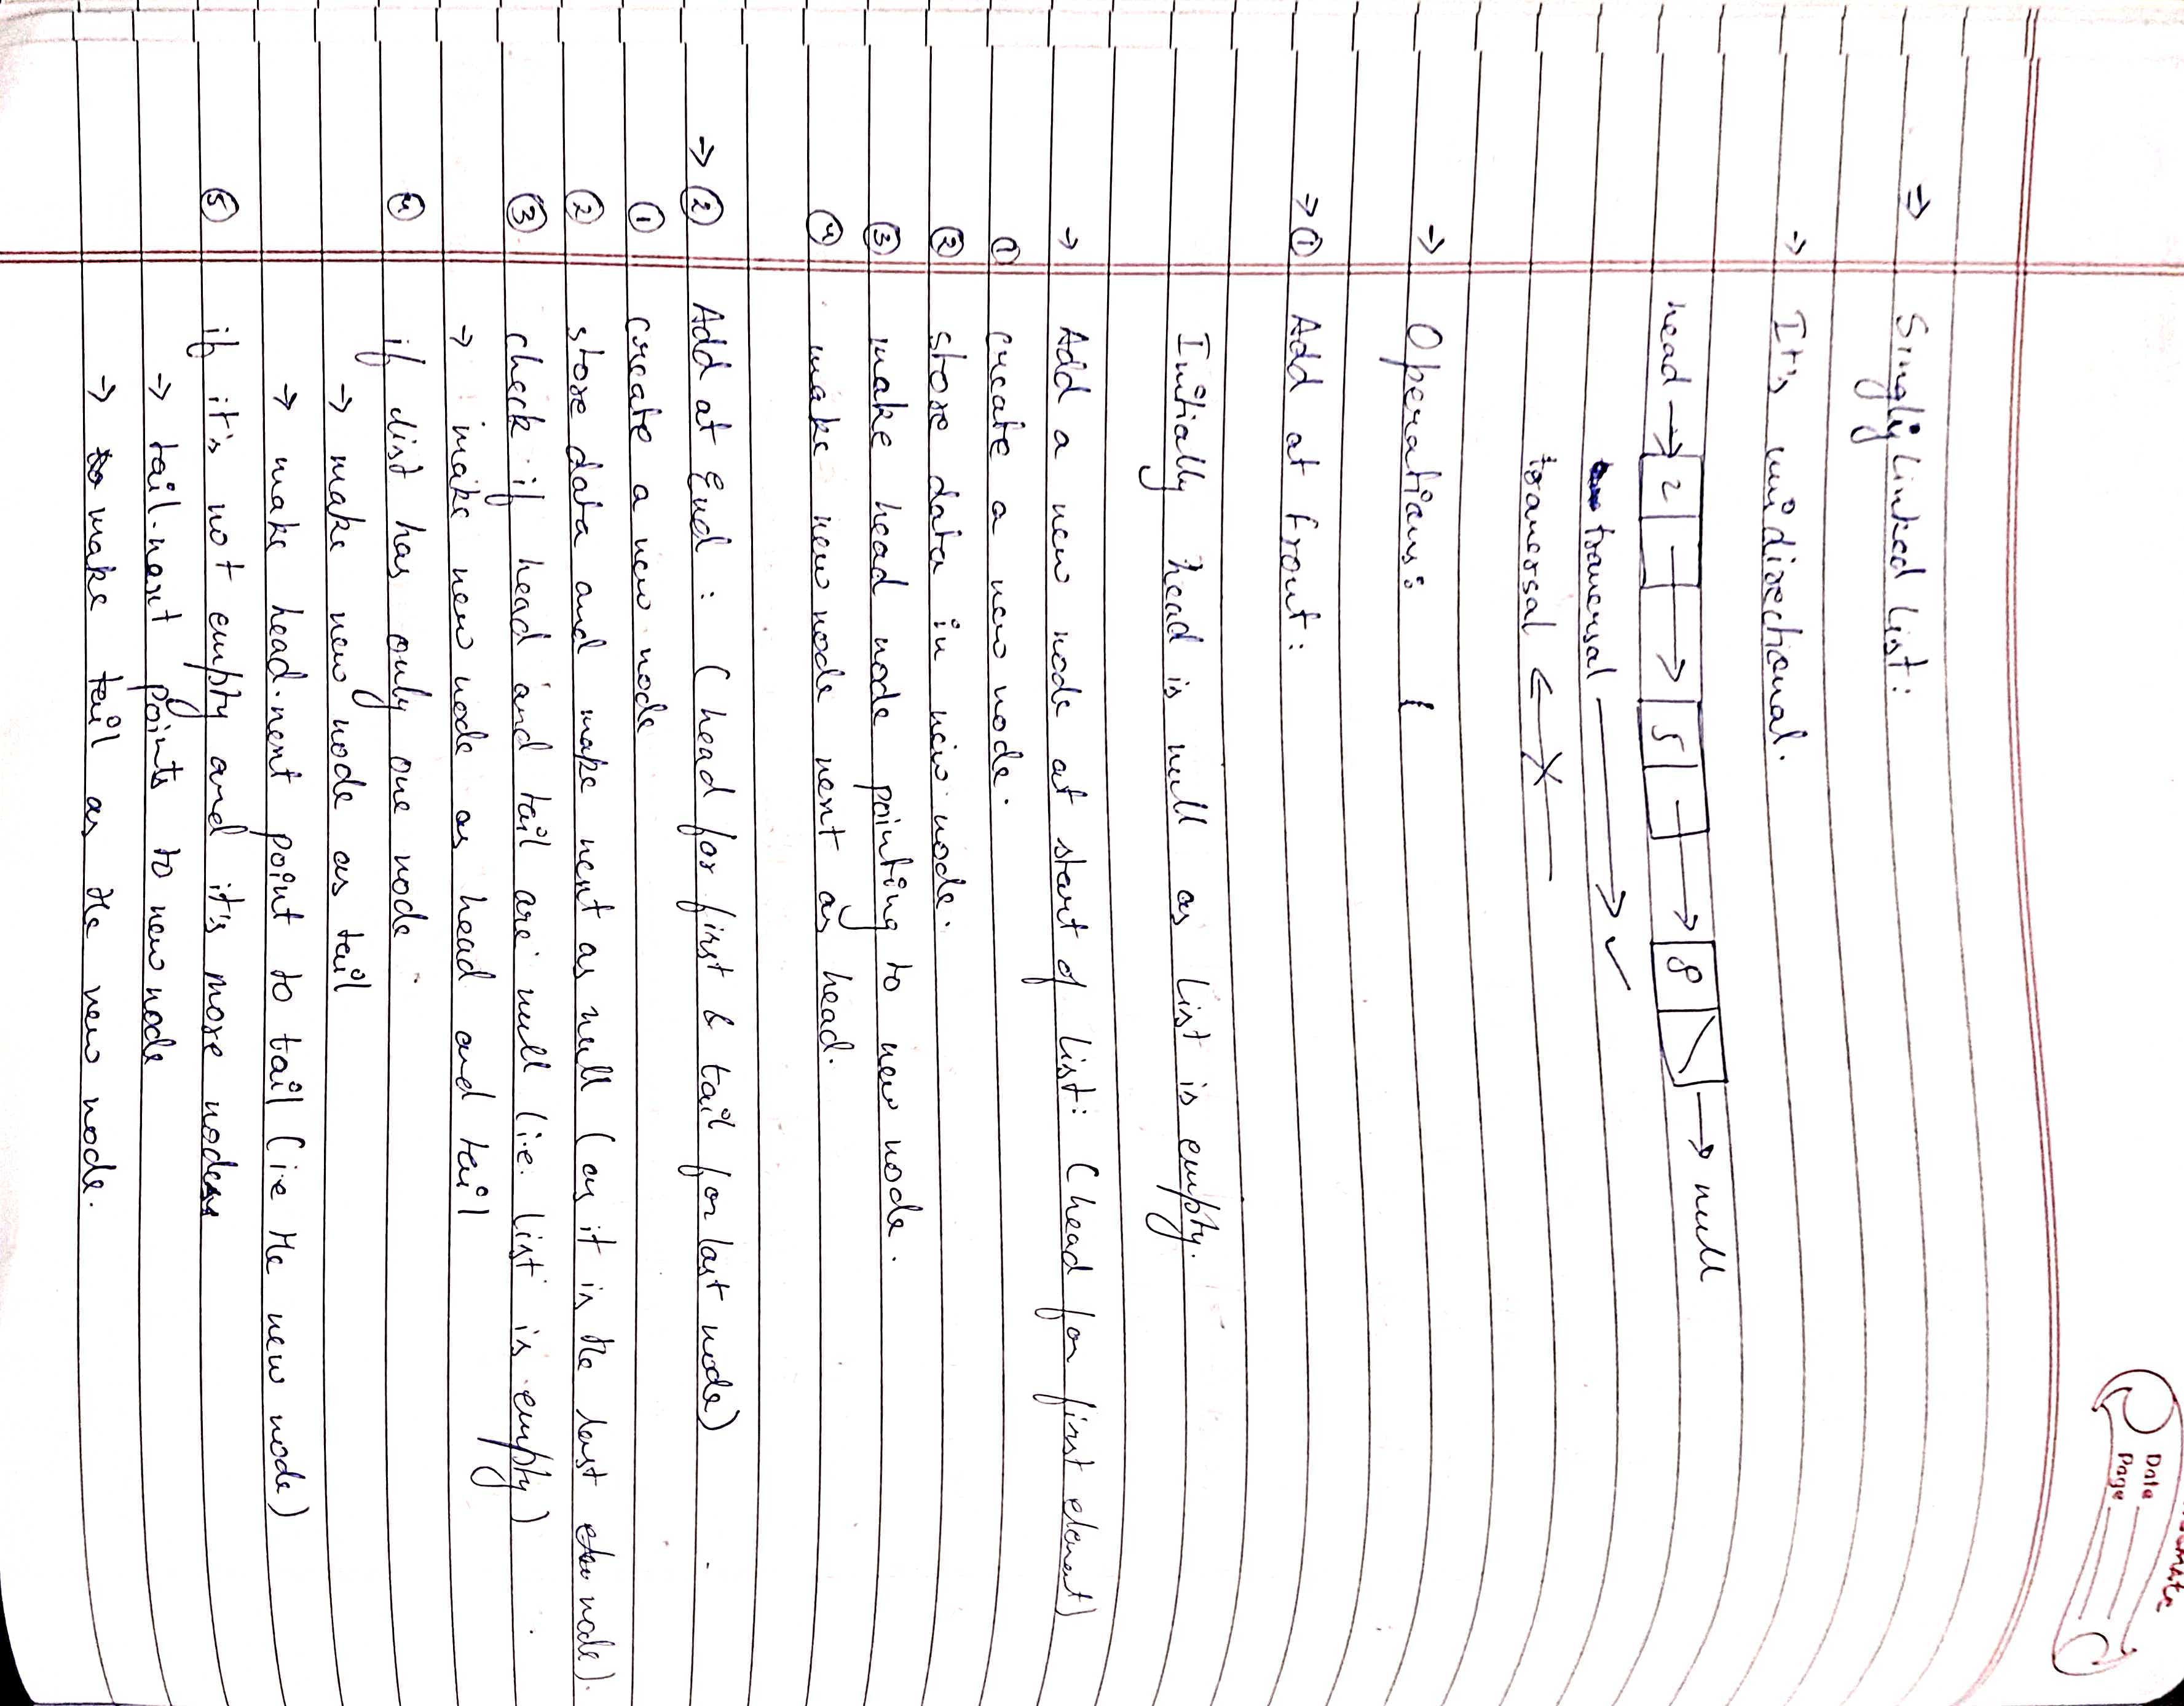 Date
Page
⇒ Singly Linked List:
→ It's unidirectional.
head → 2 → 5 → 8 → null
traversal → ✓
traversal ← X
→ Operations: {
→ ① Add at front:
Initially head is null as list is empty.
→ Add a new node at start of list: (head for first element)
① create a new node.
② store data in new node.
③ make head node pointing to new node.
④ make new node next as head.
→ ② Add at End: (head for first & tail for last node)
① create a new node
② store data and make next as null (as it is the last node).
③ check if head and tail are null (i.e. list is empty)
→ make new node as head and tail
④ if list has only one node
→ make new node as tail
→ make head.next point to tail (i.e the new node)
⑤ if it's not empty and it's more nodes
→ tail.next points to new node
→ make tail as the new node.